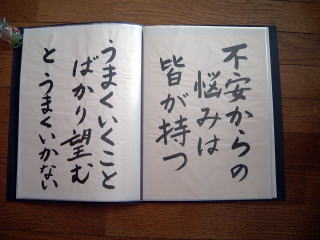 不安からの
悩みは
皆が持つ
うまくいくこと
ばかり望む
とうまくいかない